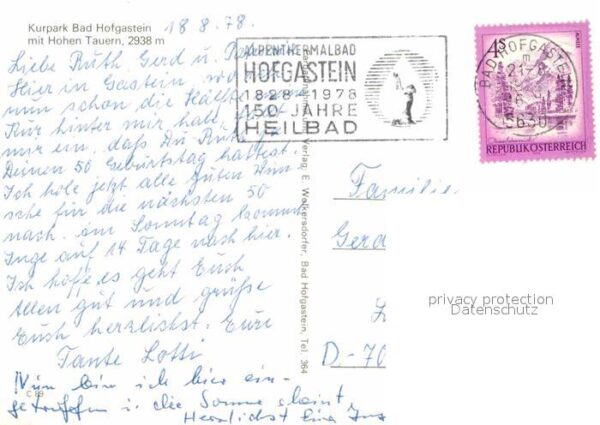 Kurpark Bad Hofgastein
mit Hohen Tauern, 2938 m
18 8. 78.
Liebe Ruth Gerd u.
Hier in Gastein, wo
nun schon die Hälfte
Kur hinter mir habe,
mir ein, daß Du Ruth
Deinen 50 Geburtstag hattest.
Ich hole jetzt alle guten Wün-
sche für die nächsten 50
nach. Am Sonntag kommt
Inge auf 14 Tage nach hier.
Ich hoffe es geht Euch
Allen gut und grüße
Euch herzlichst: Eure
Tante Lotti
Nun bin ich hier ein-
getroffen u. die Sonne scheint,
Herzlichst Eure
C 89
Verlag, E. Wolkersdorfer, Bad Hofgastein, Tel. 364
ALPENTHERMALBAD
HOFGASTEIN
1828-1978
150 JAHRE
HEILBAD
4S
REPUBLIK ÖSTERREICH
BAD HOFGASTEIN
5630
Familie
Gerd
D-70
privacy protection
Datenschutz